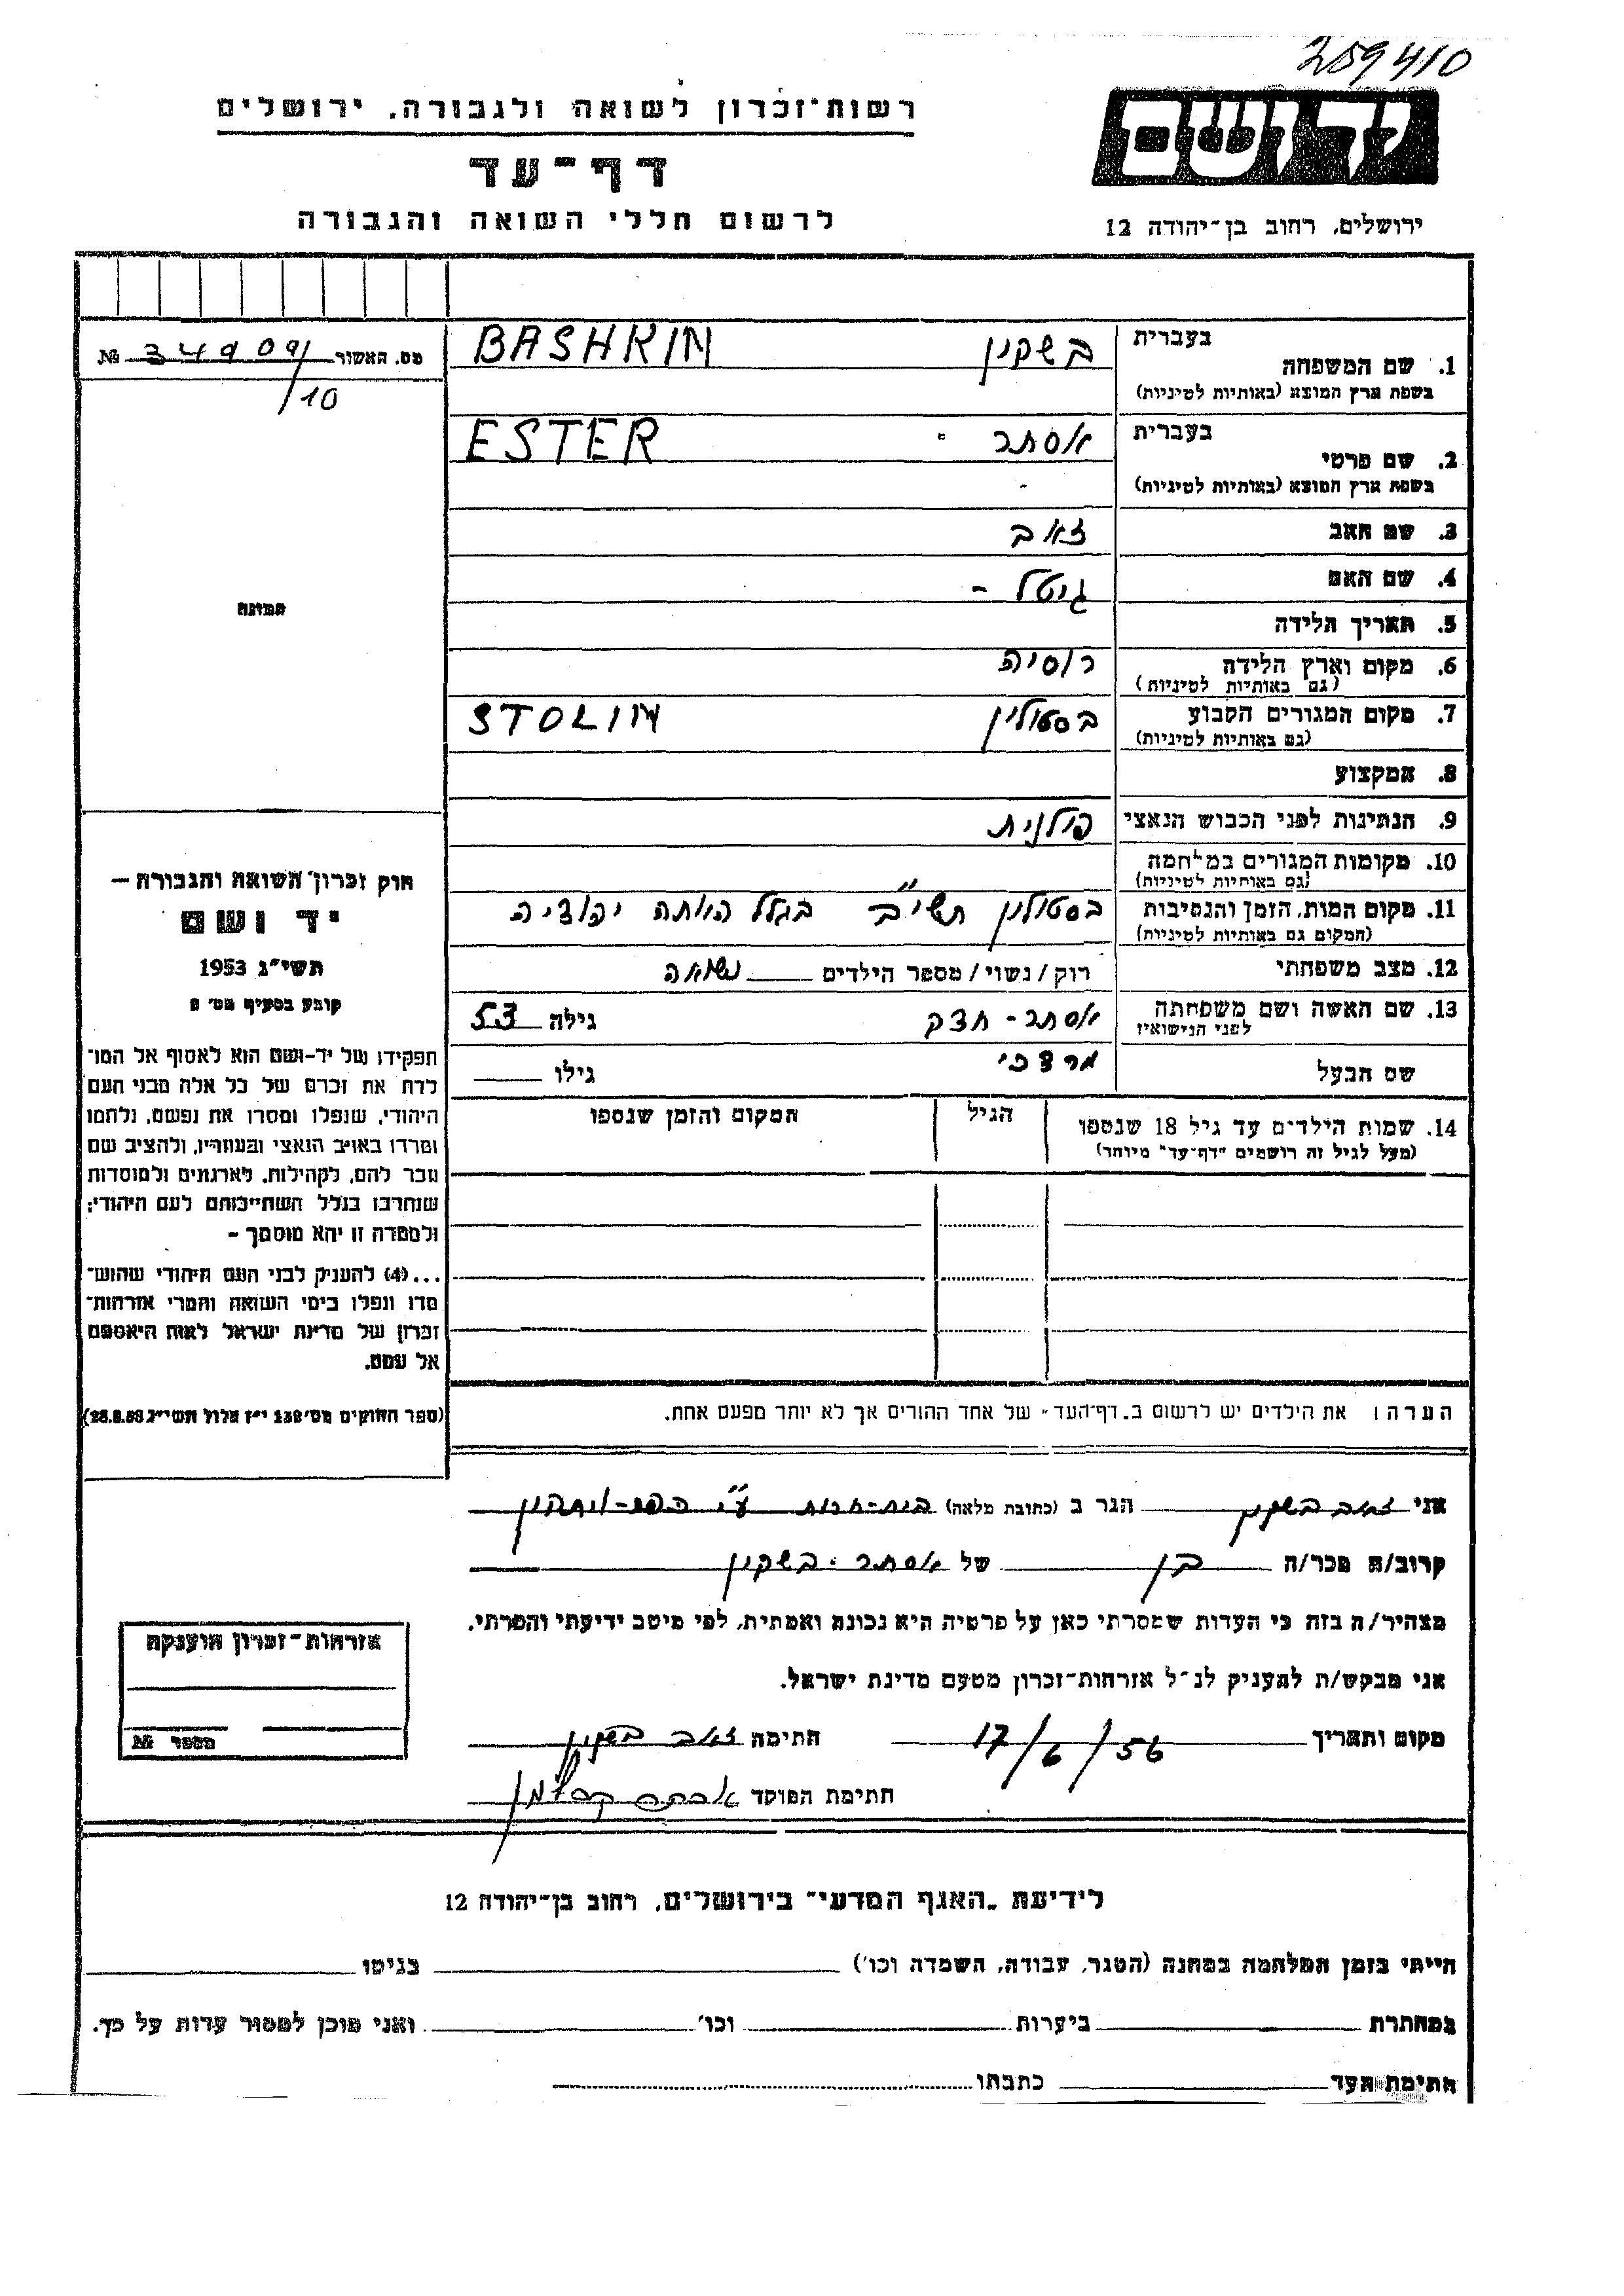 209410
יד ושם
ירושלים, רחוב בן-יהודה 12
רשות-זכרון לשואה ולגבורה, ירושלים
דף-עד
לרשום חללי השואה והגבורה
מס. האשור 34909/10 №
התמונה
חוק זכרון השואה והגבורה –
יד ושם
תשי"ג 1953
קובע בסעיף מס' 2
תפקידו של יד-ושם הוא לאסוף אל המו-
לדת את זכרם של כל אלה מבני העם
היהודי, שנפלו ומסרו את נפשם, נלחמו
ומרדו באויב הנאצי ובעוזריו, ולהציב שם
וזכר להם, לקהילות, לארגונים ולמוסדות
שנחרבו בגלל השתייכותם לעם היהודי;
ולמטרה זו יהא מוסמך –
...(4) להעניק לבני העם היהודי שהוש-
מדו ונפלו בימי השואה והמרי אזרחות-
זכרון של מדינת ישראל לאות היאספם
אל עמם.
(ספר החוקים מס' 132 י"ז אלול תשי"ג 28.8.53)
1. שם המשפחה בעברית בשקין
בשפת ארץ המוצא (באותיות לטיניות) BASHKIN
2. שם פרטי בעברית אסתר
בשפת ארץ המוצא (באותיות לטיניות) ESTER
3. שם האב זאב
4. שם האם גיטל -
5. תאריך הלידה
6. מקום וארץ הלידה רוסיה
(גם באותיות לטיניות)
7. מקום המגורים הקבוע בסטולין STOLIN
(גם באותיות לטיניות)
8. המקצוע
9. הנתינות לפני הכבוש הנאצי פולנית
10. מקומות המגורים במלחמה
(גם באותיות לטיניות)
11. מקום המות, הזמן והנסיבות בסטולין תשי"ב בגלל היותה יהודיה
(המקום גם באותיות לטיניות)
12. מצב משפחתי רוק/נשוי/מספר הילדים נשואה
13. שם האשה ושם משפחתה אסתר - חצק גילה 53
לפני הנישואין
שם הבעל מרדכי גילו
14. שמות הילדים עד גיל 18 שנספו הגיל המקום והזמן שנספו
(מעל לגיל זה רושמים "דף-עד" מיוחד)
הערה: את הילדים יש לרשום ב„דף-העד" של אחד ההורים אך לא יותר מפעם אחת.
אני זאב בשקין הגר ב (כתובת מלאה) בית-חרות ע"י כפר-ויתקין
קרוב/ה מכר/ה בן של אסתר בשקין
מצהיר/ה בזה כי העדות שמסרתי כאן על פרטיה היא נכונה ואמתית, לפי מיטב ידיעתי והכרתי.
אני מבקש/ת להעניק לנ"ל אזרחות-זכרון מטעם מדינת ישראל.
מקום ותאריך 17/6/56 חתימה זאב בשקין
חתימת הפוקד
אזרחות-זכרון הוענקה
מספר №
לידיעת „האגף המדעי" בירושלים, רחוב בן-יהודה 12
הייתי בזמן המלחמה במחנה (הסגר, עבודה, השמדה וכו') בגיטו
במחתרת ביערות וכו' ואני מוכן למסור עדות על כך.
חתימת העד כתבתו